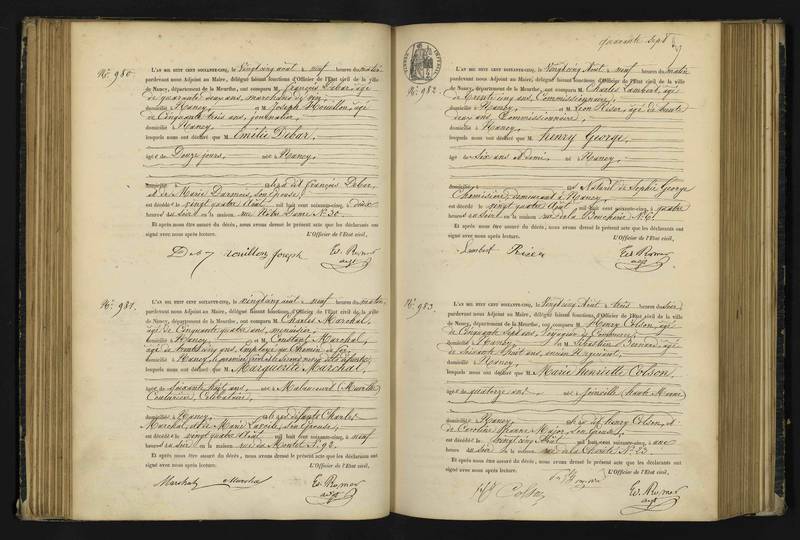 No. 980.
L'AN MIL HUIT CENT SOIXANTE-CINQ, le vingt cinq août à neuf heures du matin
pardevant nous Adjoint au Maire, délégué faisant fonctions d'Officier de l'Etat civil de la ville
de Nancy, département de la Meurthe, ont comparu M. François Debar, âgé
de quarante deux ans, marchand de vin,
domicilié à Nancy, et M. Joseph Mouillon, âgé
de Cinquante trois ans, journalier,
domicilié à Nancy,
lesquels nous ont déclaré que M. Emilie Debar,
âgée de Douze jours, née à Nancy,
domiciliée à dit François Debar,
et de Marie son épouse,
est décédée le vingt quatre Août mil huit cent soixante-cinq, à Dix
heures du soir en la maison rue Notre Dame No. 30
Et après nous être assuré du décès, nous avons dressé le présent acte que les déclarants ont
signé avec nous après lecture. L'Officier de l'Etat civil,
Joseph
No. 981.
L'AN MIL HUIT CENT SOIXANTE-CINQ, le vingt cinq août à neuf heures du matin,
pardevant nous Adjoint au Maire, délégué faisant fonctions d'Officier de l'Etat civil de la ville
de Nancy, département de la Meurthe, ont comparu M. Charles Marchal,
âgé de Cinquante quatre ans, menuisier,
domicilié à Nancy, et M. Constant Marchal,
âgé de trente cinq ans, Employé au Chemin de fer,
domicilié à Nancy,
lesquels nous ont déclaré que M. Marguerite Marchal,
âgée de soixante huit ans, née à (Moselle)
Couturière, Célibataire,
domiciliée à Nancy, défunts Charles
Marchal, et de Marie son épouse,
est décédée le vingt quatre Août mil huit cent soixante-cinq, à neuf
heures du soir en la maison rue de Montet No. 93.
Et après nous être assuré du décès, nous avons dressé le présent acte que les déclarants ont
signé avec nous après lecture. L'Officier de l'Etat civil,
Marchal Marchal
quarante sept
No. 982.
L'AN MIL HUIT CENT SOIXANTE-CINQ, le Vingt cinq Août à neuf heures du matin
pardevant nous Adjoint au Maire, délégué faisant fonctions d'Officier de l'Etat civil de la ville
de Nancy, département de la Meurthe, ont comparu M. Charles Lambert, âgé
de Trente cinq ans, Commissionnaire,
domicilié à Nancy, et M. Léon Riser, âgé de trente
deux ans, Commissionnaire,
domicilié à Nancy,
lesquels nous ont déclaré que M. Henry George,
âgé de six ans et demi, né à Nancy,
domicilié à Naturel de Sophie George
demeurant à Nancy,
est décédé le vingt quatre Août mil huit cent soixante-cinq, à quatre
heures du soir en la maison rue de la Boucherie No. 6.
Et après nous être assuré du décès, nous avons dressé le présent acte que les déclarants ont
signé avec nous après lecture. L'Officier de l'Etat civil,
Lambert Riser
No. 983.
L'AN MIL HUIT CENT SOIXANTE-CINQ, le Vingt cinq Août à trois heures du soir,
pardevant nous Adjoint au Maire, délégué faisant fonctions d'Officier de l'Etat civil de la ville
de Nancy, département de la Meurthe, ont comparu M. Henry Colson, âgé
de Cinquante sept ans, Voyageur de Commerce,
domicilié à Nancy, et M. Sébastien Bernard âgé
de soixante huit ans,
domicilié à Nancy,
lesquels nous ont déclaré que M. Marie Henriette Colson,
âgée de quatorze ans née à Joinville (haute Marne)
domiciliée à Nancy, dit Henry Colson, et
de Caroline Major son épouse,
est décédée le vingt cinq Août mil huit cent soixante-cinq, à une
heure du soir en la maison rue de la Charité No. 23.
Et après nous être assuré du décès, nous avons dressé le présent acte que les déclarants ont
signé avec nous après lecture. L'Officier de l'Etat civil,
Colson